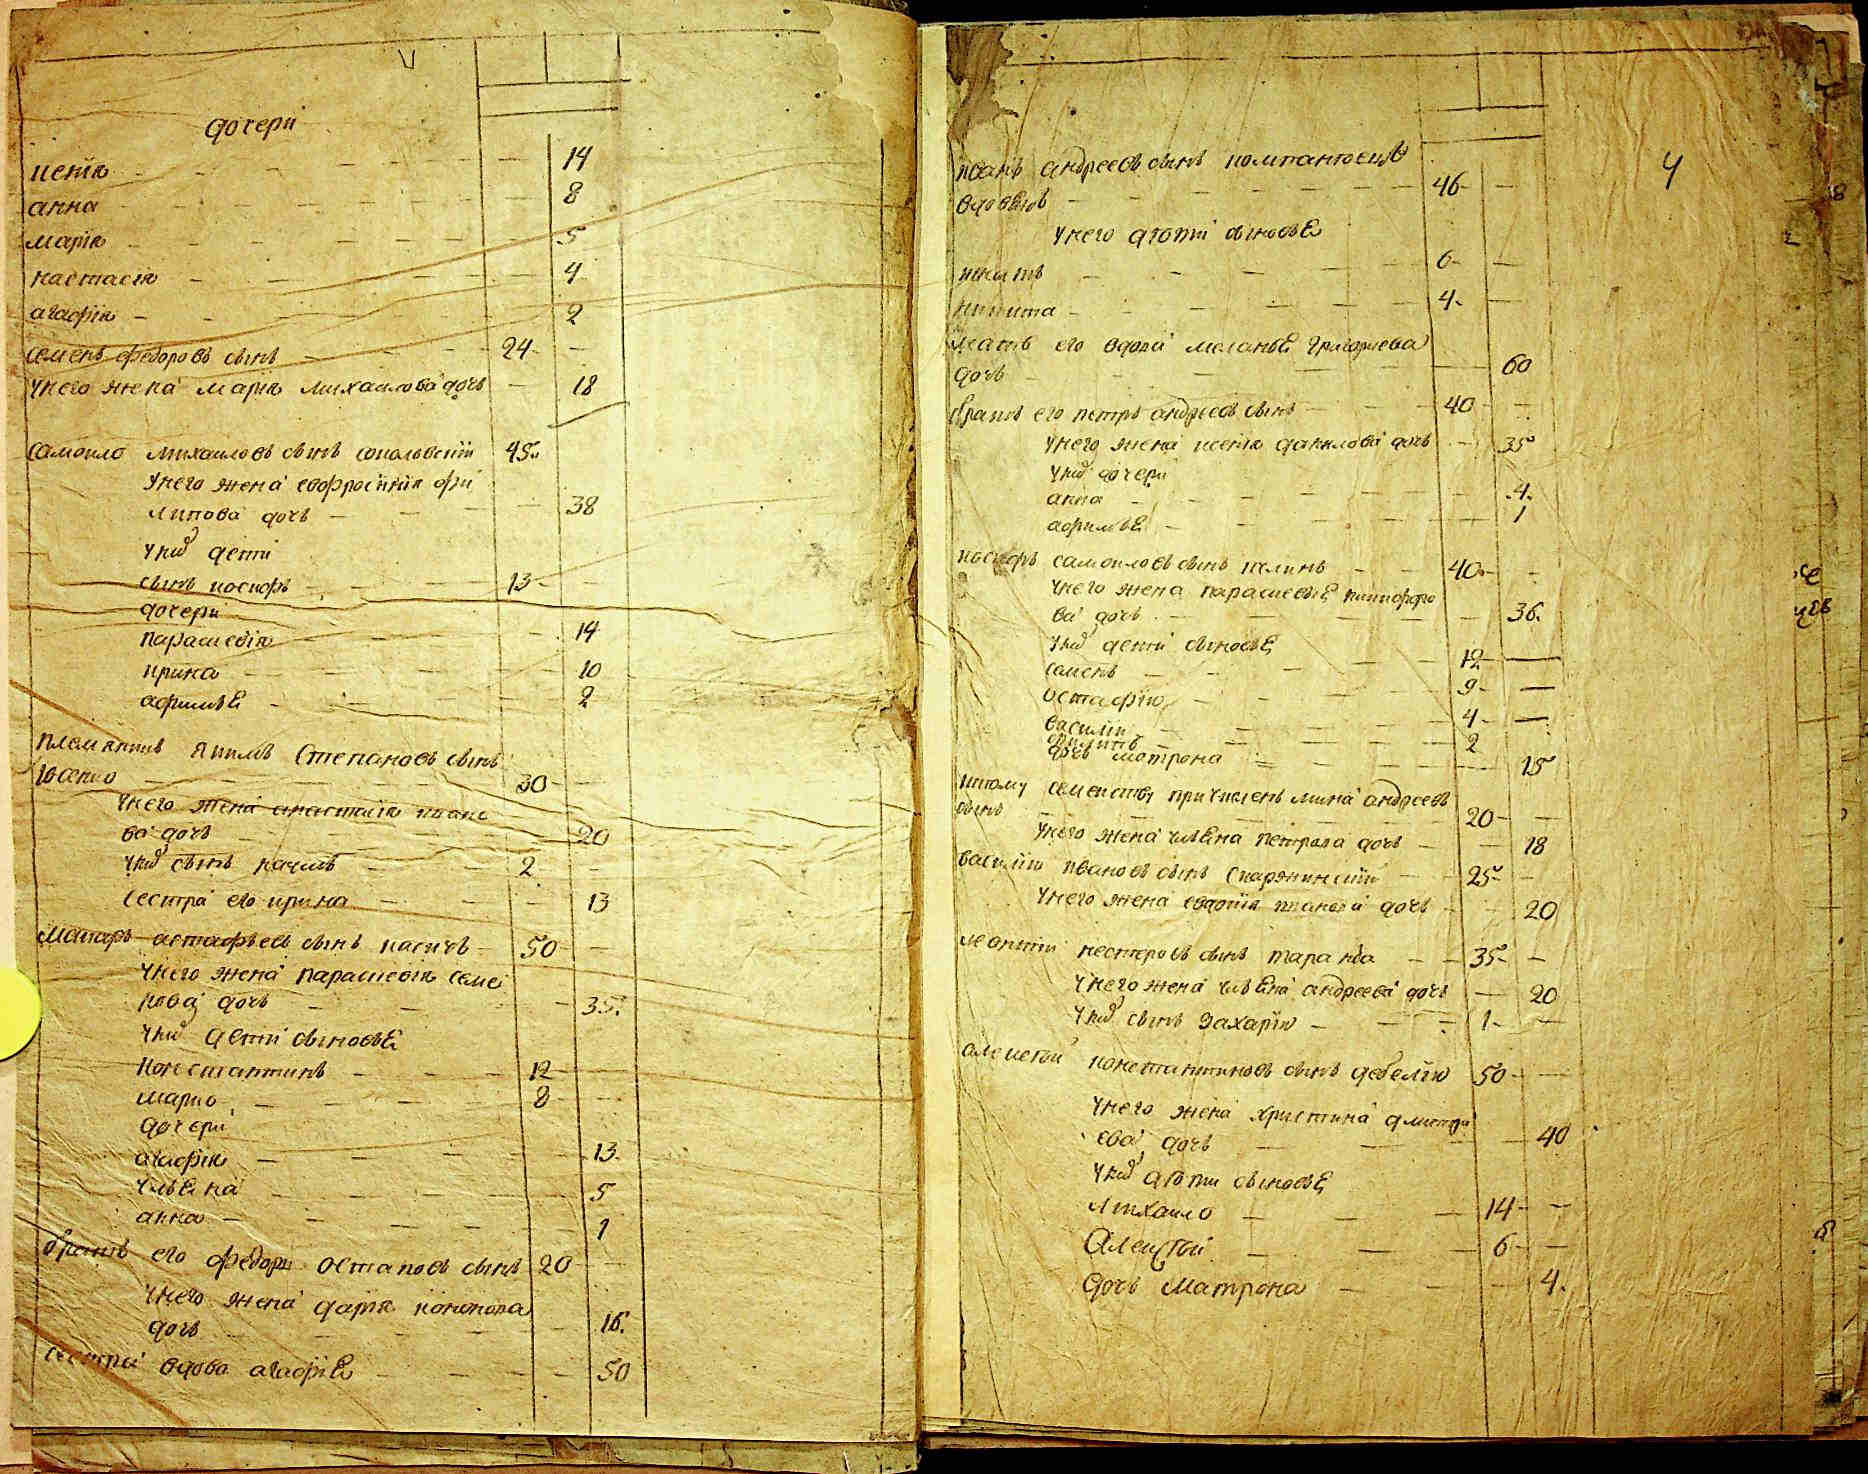 дочери
14
анна 8
мария 5
настасия 4
агафия 2
семенъ федоровъ сынъ 24
унего жена мария михаилова дочь 18
самоило михаиловъ сынъ соколовский 45
унего жена евфросиния фи
липова дочь 38
уних дети
сынъ иосифъ 13
дочери
параскевия 14
ирина 10
афимья 2
племянник яким степановъ сынъ
30
унего жена анастасия ивано
ва дочь 20
уних сынъ 2
сестра его ирина 13
макаръ астафьевъ сынъ 50
унего жена параскевия семе
нова дочь 35
уних дети сыновья
константинъ 12
марко 8
дочери
агафия 13
ульяна 5
анна 1
братъ его федоръ остаповъ сынъ 20
унего жена дария кононова
дочь 16
сестра вдова агафия 50
4
иванъ андреевъ сынъ
вдовецъ 46
унего дѣти сыновья
6
никита 4
мать его вдова меланья григориева
дочь 60
братъ его петръ андреевъ сынъ 40
унего жена ксения данилова дочь 35
уних дочери
анна 4
афимья 1
иосифъ самоиловъ сынъ 40
унего жена параскевия никифоро
ва дочь 36
уних дети сыновья
семенъ 12
остафию 9
василии 4
филипъ 2
дочь мотрона 15
ктому семейству причисленъ мина андреевъ
сынъ 20
унего жена ульяна петрова дочь 18
василий ивановъ сынъ 25
унего жена евдокия иванова дочь 20
леонтий нестеровъ сынъ таранъ 35
унего жена ульяна андреева дочь 20
уних сынъ захария 1
алексей константиновъ сынъ дебелый 50
унего жена христина дмитри
ева дочь 40
уних дѣти сыновья
михаило 14
алексей 6
дочь матрона 4